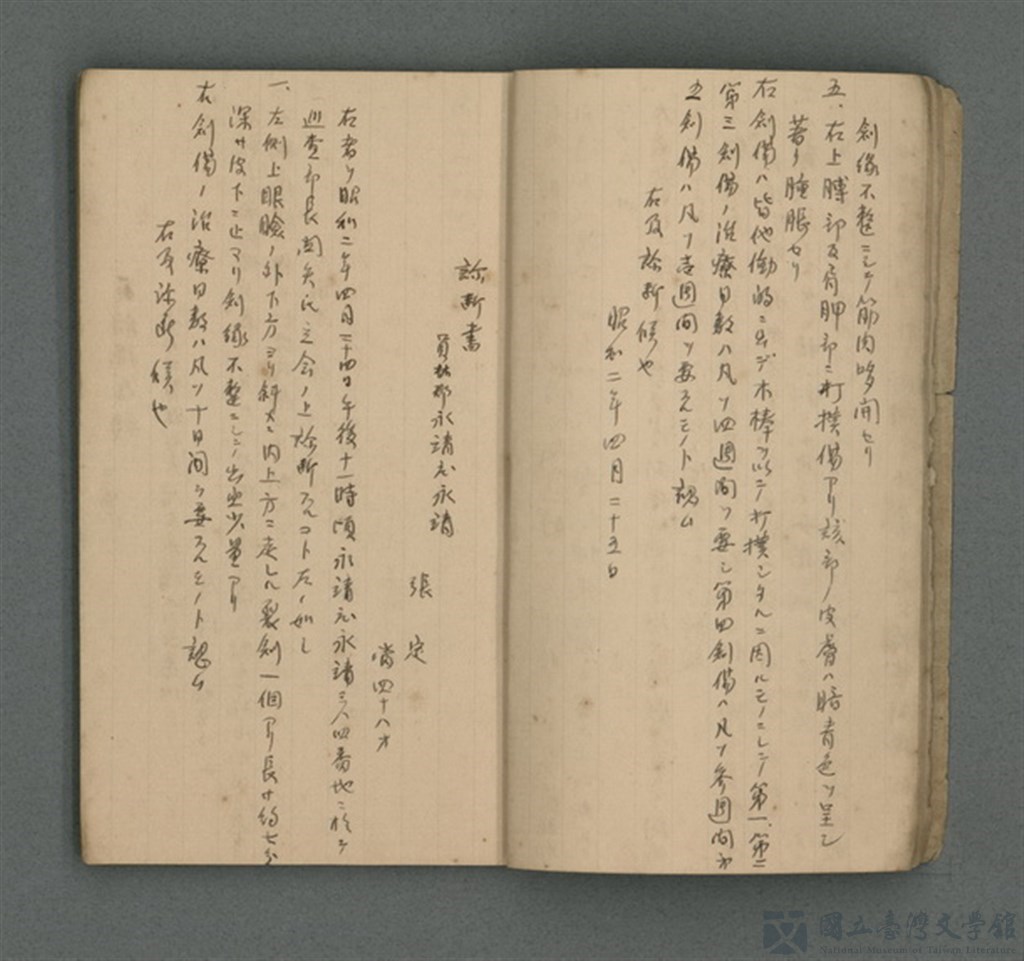 創縁不整ニシテ筋肉哆開セリ
五、右上膊部及肩胛部ニ打撲傷アリ該部ノ皮膚ハ暗青色ヲ呈シ
著シ腫脹セリ
右創傷ハ皆他働的ニシテ木棒ヲ以テ打撲シタルニ因ルモノニシテ第一、第二
第三創傷ノ治療日数ハ凡ソ四週間ヲ要シ第四創傷ハ凡ソ参週間第
五創傷ハ凡ソ壱週間ヲ要スルモノト認ム
右及診断候也
昭和二年四月二十五日
診断書
員林郡永靖庄永靖
張 定
当四十八才
右者ハ昭和二年四月二十四日午後十一時頃永靖庄永靖三八四番地ニ於テ
巡査部長 立会ノ上診断スルコト左ノ如し
一、左側上眼瞼ノ外下方ヨリ斜メニ内上方ニ走レル裂創一個アリ長サ約七分
深サ皮下ニ止マリ創縁不整ニシテ出血少量アリ
右創傷ノ治療日数ハ凡ソ十日間ヲ要スルモノト認ム
右及診断候也
國立臺灣文學館
National Museum of Taiwan Literature